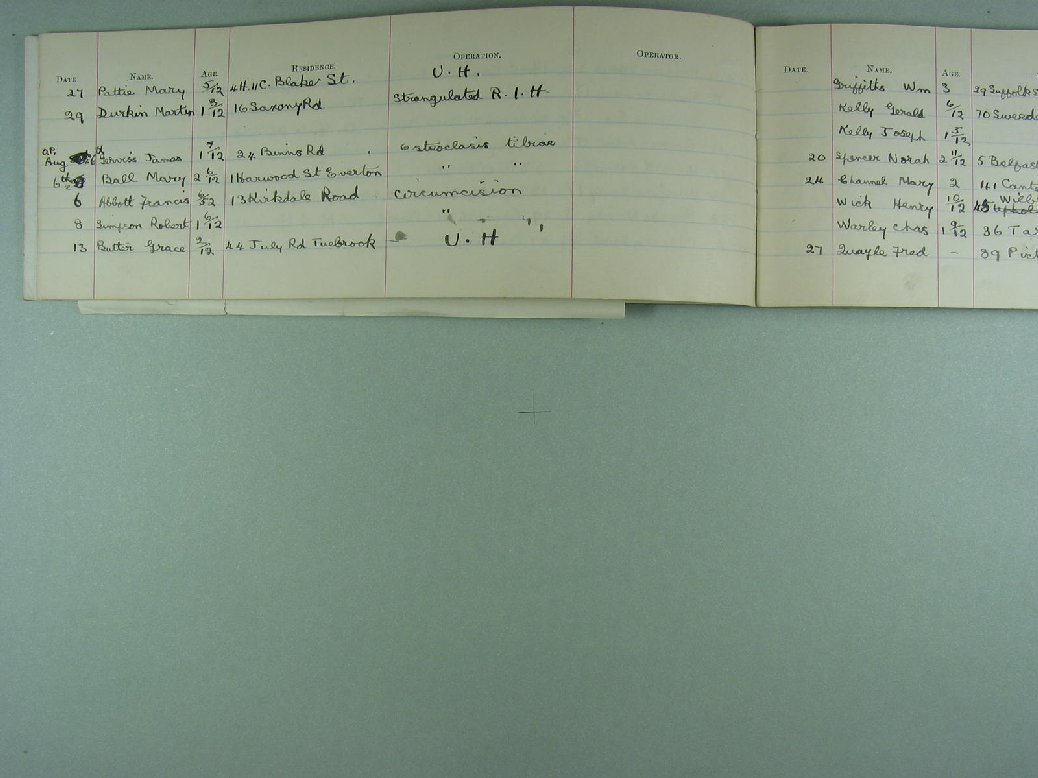 Date Name. Age Residence. Operation. Operator.
27 Pattie Mary 5/12 4 H. 11 C. Blake St. U. H.
29 Durkin Martin 1 3/12 16 Saxony Rd Strangulated R. I. H
Aug James 1 7/12 24 Binns Rd. Osteoclasis tibiae
6th Ball Mary 2 6/12 1 Harwood St Everton " "
6 Abbott Francis 13 Kirkdale Road Circumcision
8 Simpson Robert 1 6/12 " "
13 Butter Grace 44 July Rd Tuebrook U. H
Date. Name. Age.
Griffiths Wm 3 29 Suffolk S
Kelly Gerald 6/12 70
Kelly Joseph 1 5/12
20 Spencer Norah 2 11/12 5 Belfas
24 Channel Mary 2 141 Cant
Wick Henry 10/12
Warley Chas 1 9/12 36 Ta
27 Quayle Fred - 39